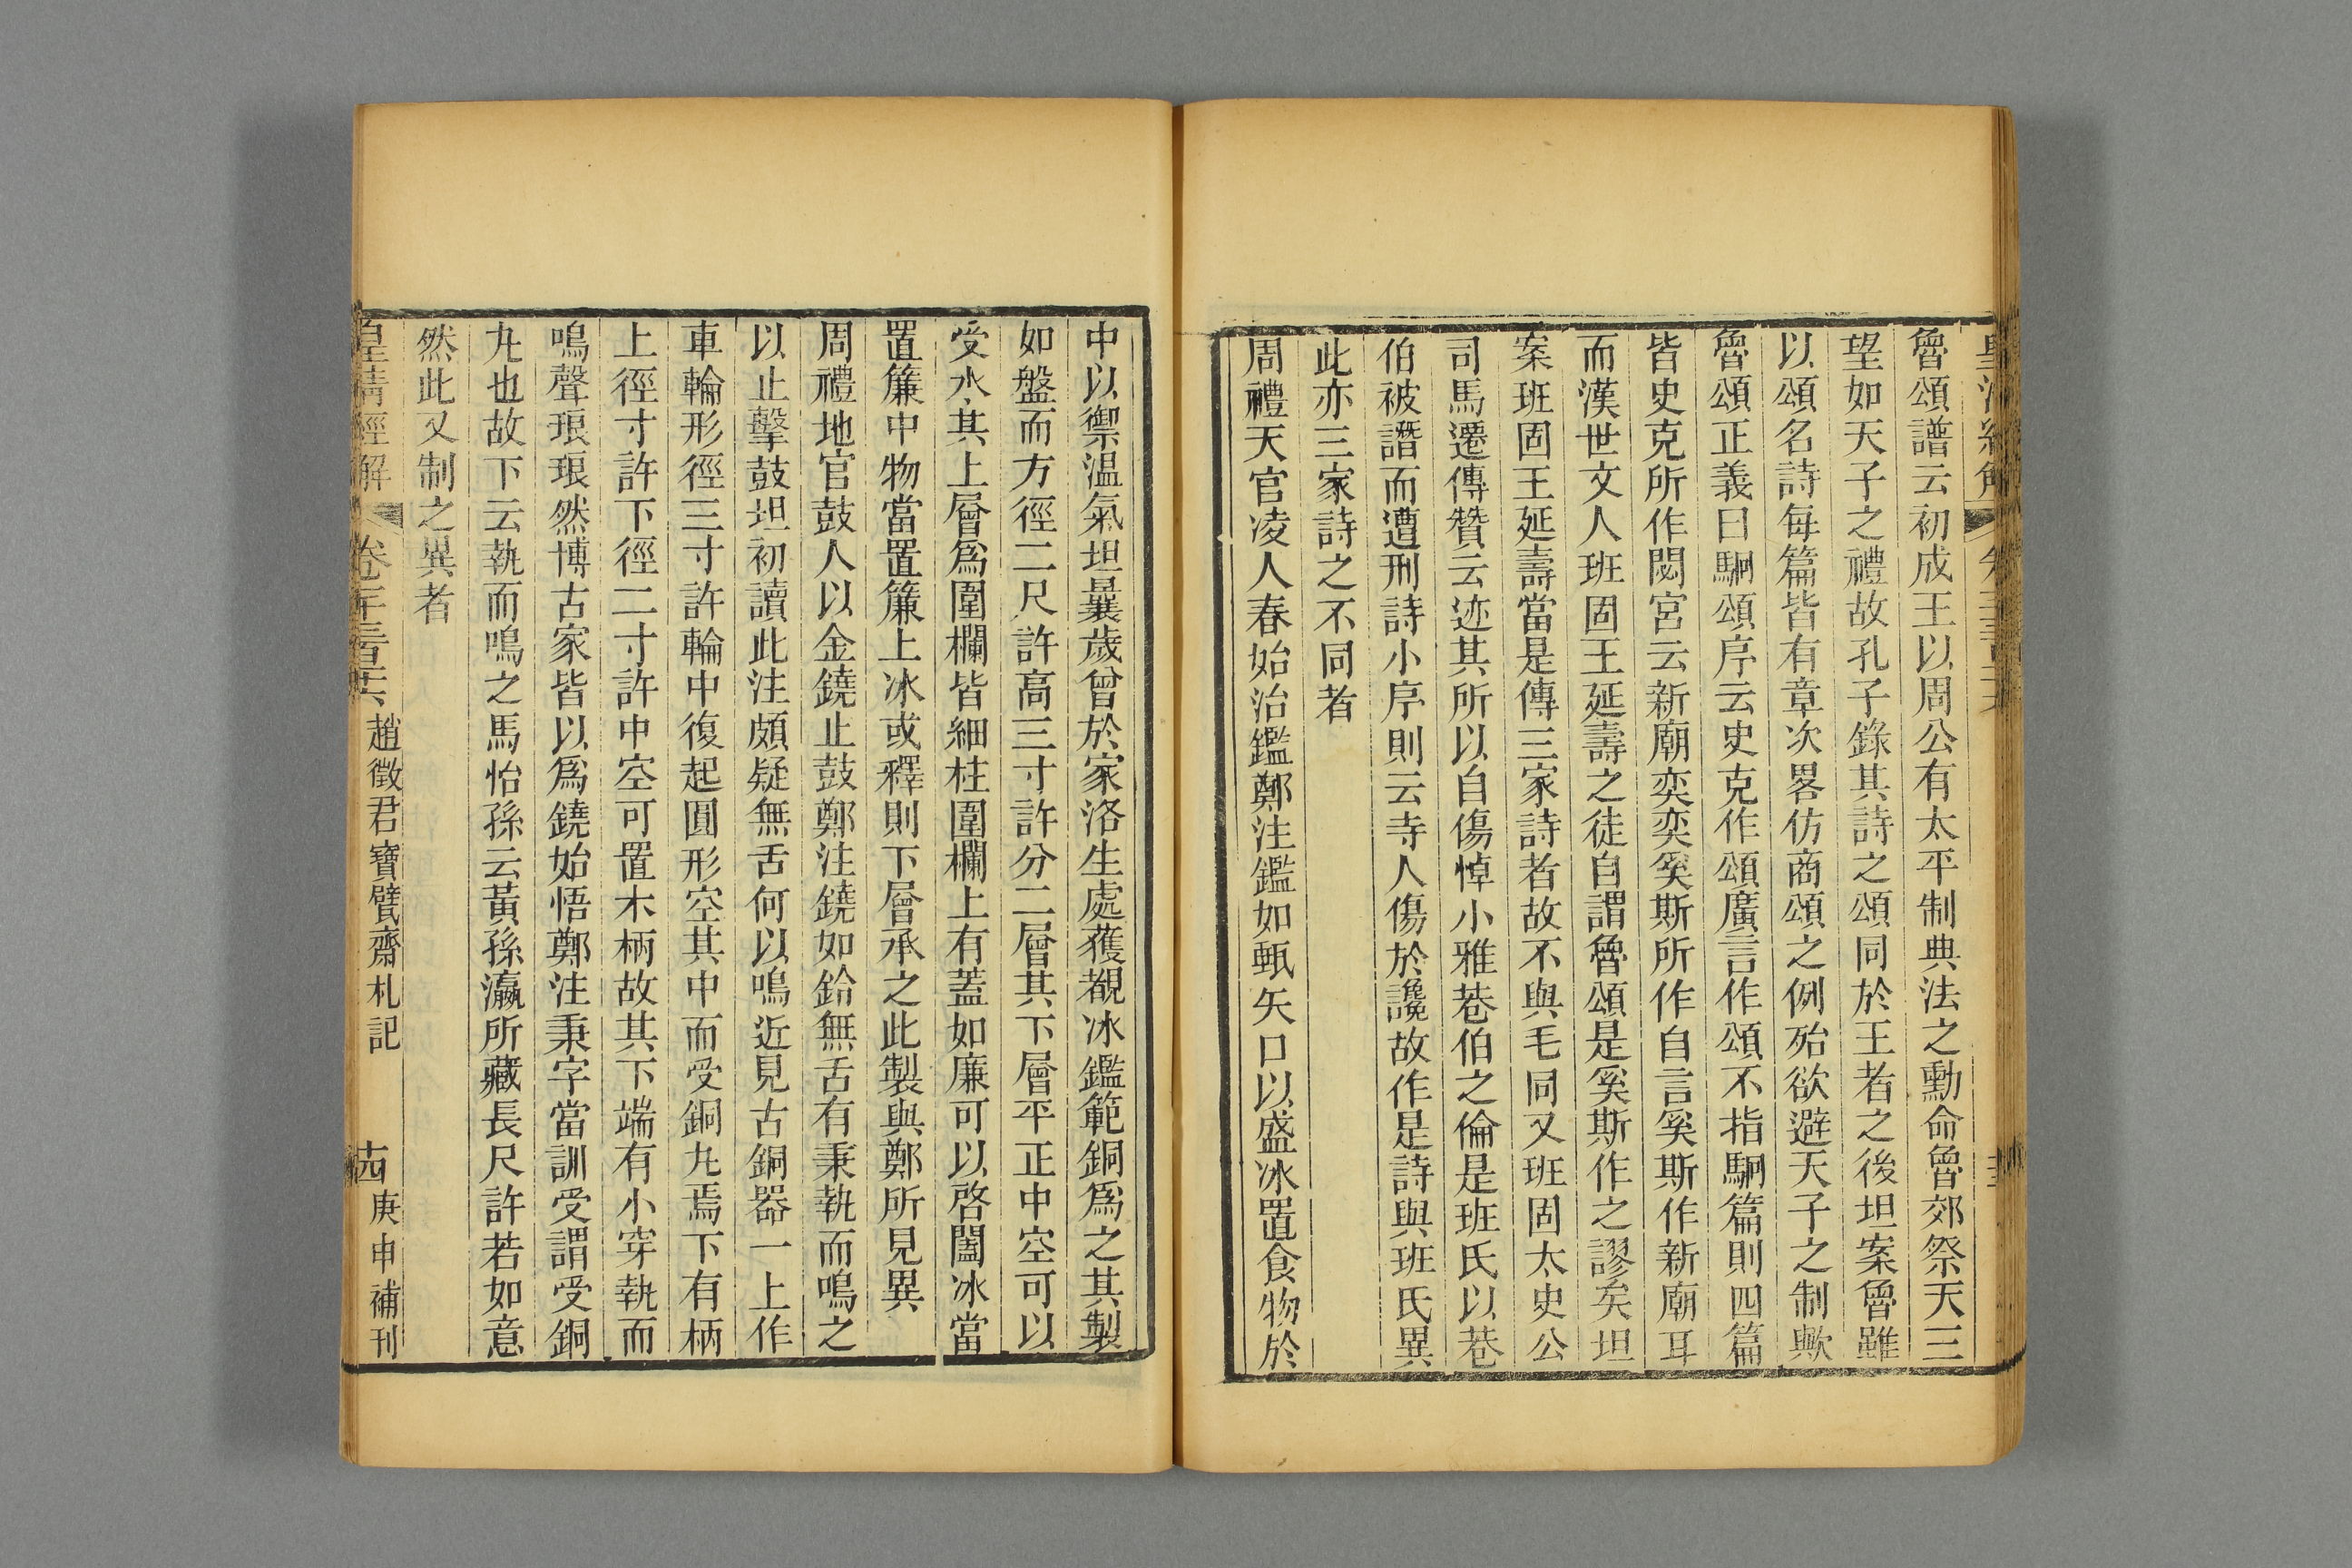 魯頌譜云初成王以周公有太平制典法之勳命魯郊祭天三
望如天子之禮故孔子錄其詩之頌同於王者之後坦案魯雖
以頌名詩每篇皆有章次畧仿商頌之例殆欲避天子之制歟
魯頌正義曰駉頌序云史克作頌廣言作頌不指駉篇則四篇
皆史克所作閟宮云新廟奕奕奚斯所作自言奚斯作新廟耳
而漢世文人班固王延壽之徒自謂魯頌是奚斯作之謬矣坦
案班固王延壽當是傳三家詩者故不與毛同又班固太史公
司馬遷傳贊云迹其所以自傷悼小雅巷伯之倫是班氏以巷
伯被譖而遭刑詩小序則云寺人傷於讒故作是詩與班氏異
此亦三家詩之不同者
周禮天官凌人春始治鑑鄭注鑑如甄矢口以盛冰置食物於
中以禦温氣坦曩歲曾於家洛生處獲覩冰鑑範銅爲之其製
如盤而方徑二尺許高三寸許分二層其下層平正中空可以
受水其上層爲圍欄皆細柱圍欄上有蓋如廉可以啓闔冰當
置簾中物當置簾上冰或釋則下層承之此製與鄭所見異
周禮地官鼓人以金鐃止鼓鄭注鐃如鈴無舌有秉執而鳴之
以止擊鼓坦初讀此注頗疑無舌何以鳴近見古銅器一上作
車輪形徑三寸許輪中復起圓形空其中而受銅九焉下有柄
上徑寸許下徑二寸許中空可置木柄故其下端有小穿執而
鳴聲琅琅然博古家皆以爲鐃始悟鄭注秉字當訓受謂受銅
九也故下云執而鳴之馬怡孫云黃孫瀛所藏長尺許若如意
然此又制之異者
皇清經解 卷一千三百十六 趙徵君寶甓齋札記 十四 庚申補刊